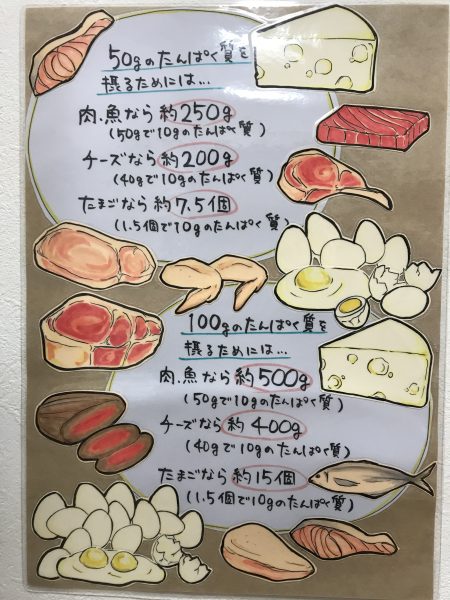 50gのたんぱく質を
摂るためには…
肉、魚なら約250g
(50gで10gのたんぱく質)
チーズなら約200g
(40gで10gのたんぱく質)
たまごなら約7.5個
(1.5個で10gのたんぱく質)
100gのたんぱく質を
摂るためには…
肉、魚なら約500g
(50gで10gのたんぱく質)
チーズなら約400g
(40gで10gのたんぱく質)
たまごなら約15個
(1.5個で10gのたんぱく質)